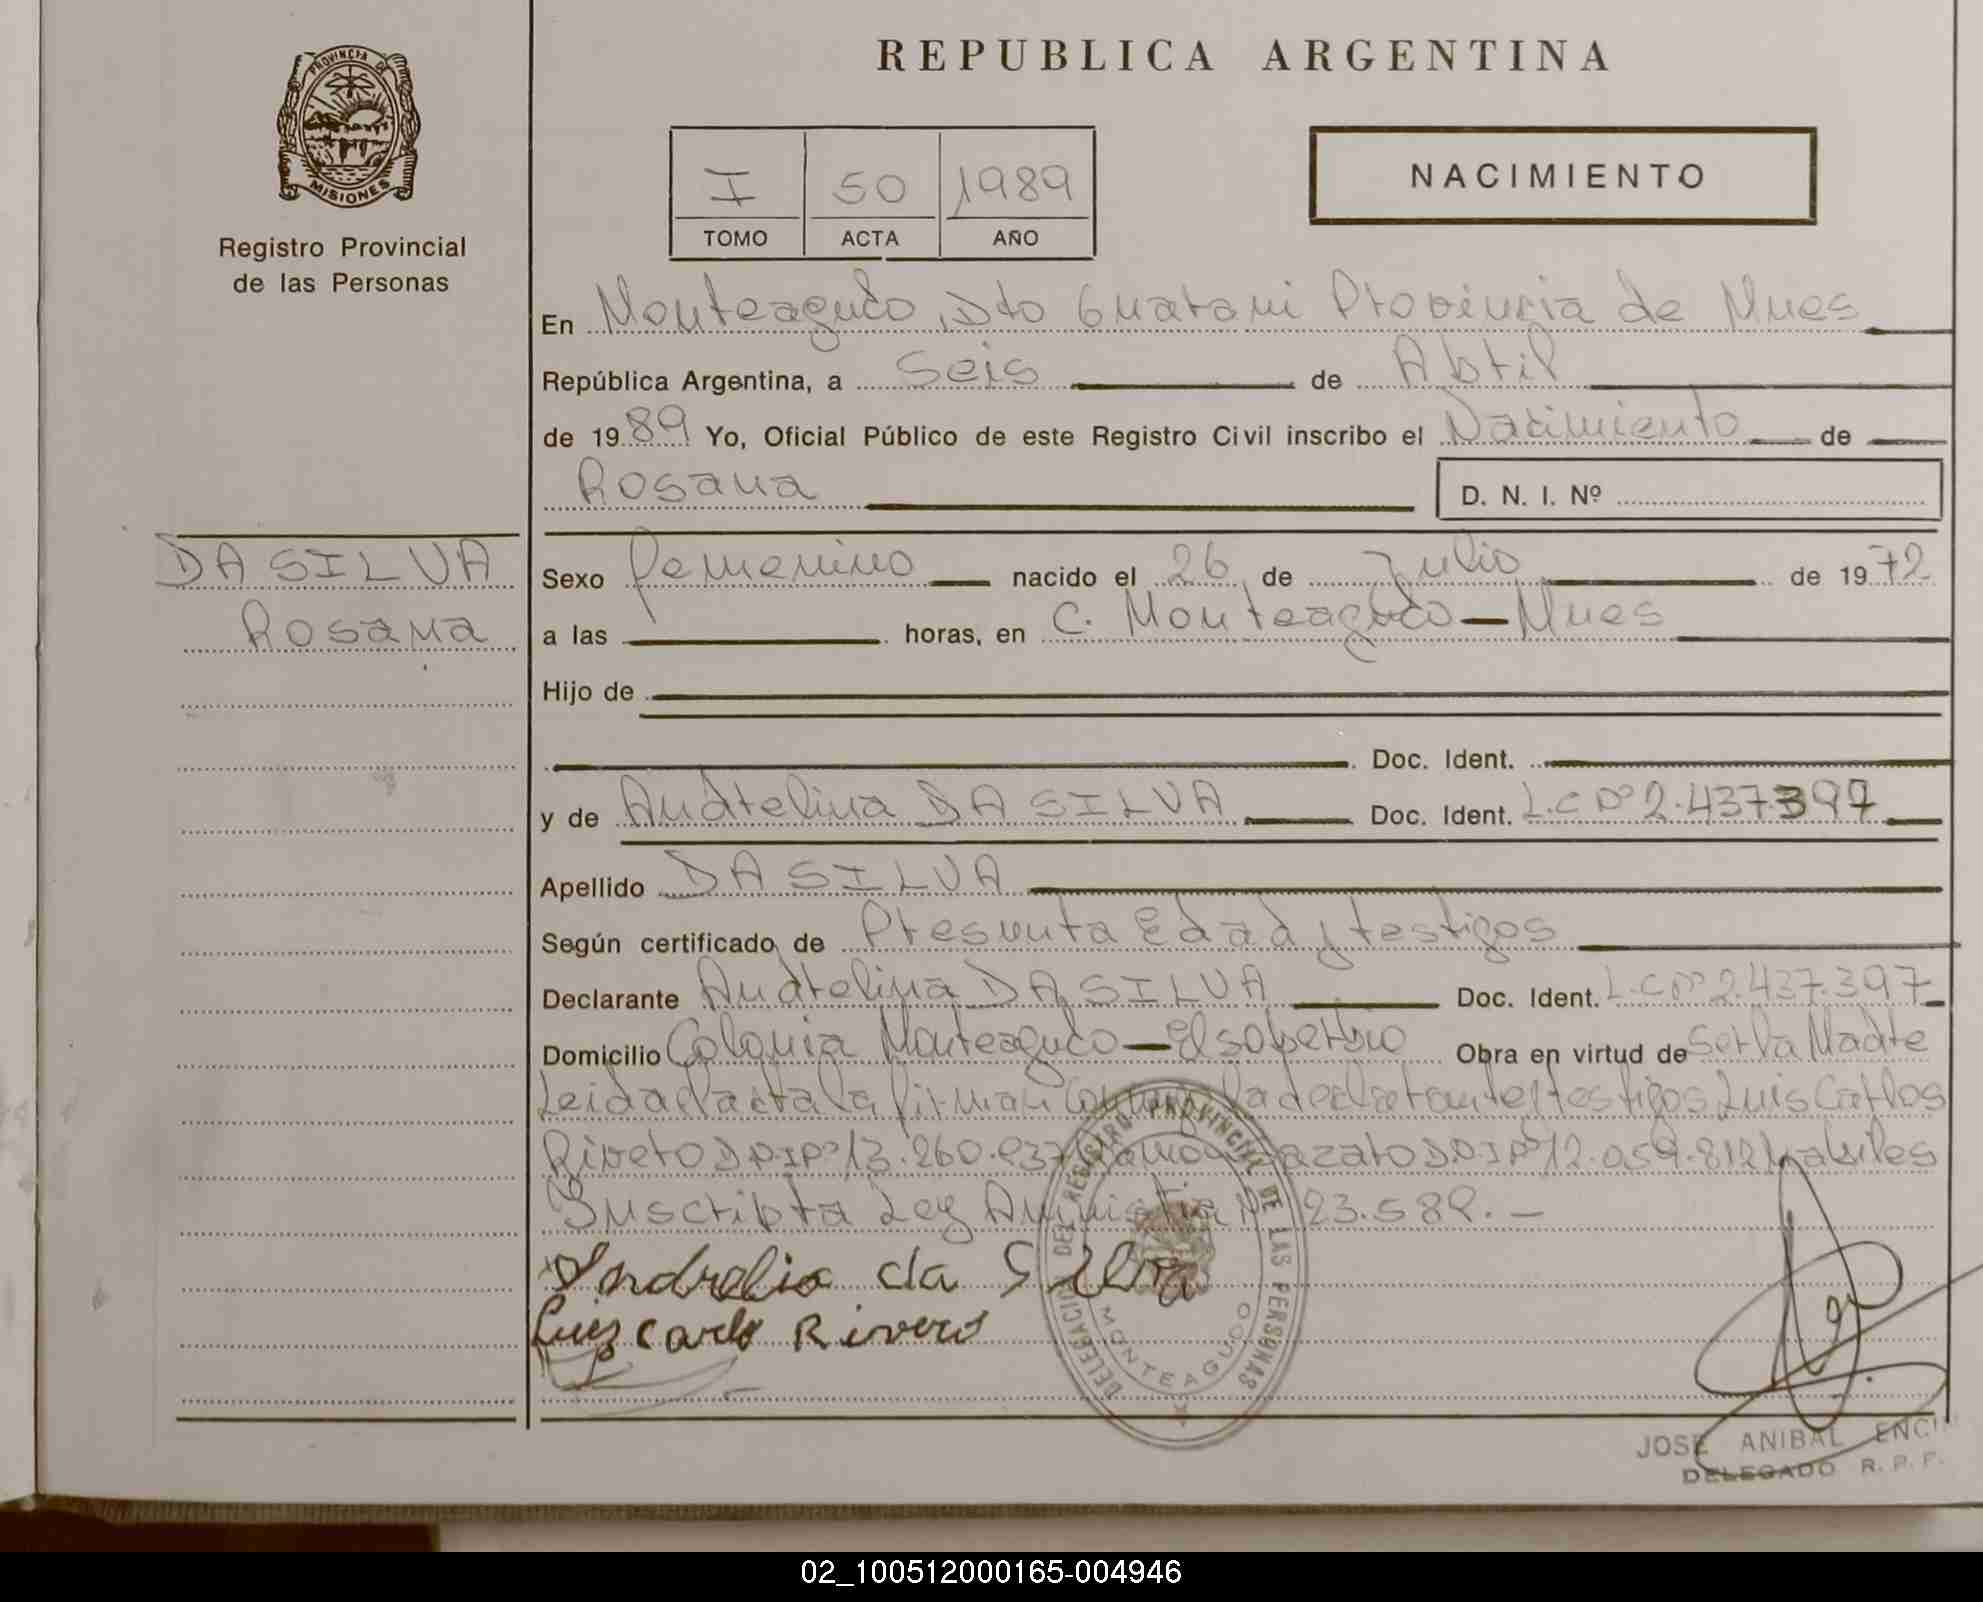 REPUBLICA ARGENTINA
PROVINCIA DE
MISIONES
Registro Provincial
de las Personas
I 50 1989
TOMO ACTA AÑO
NACIMIENTO
En Monteagudo, Dto Guarani Provincia de Mnes
República Argentina, a seis de Abril
de 1989 Yo, Oficial Público de este Registro Civil inscribo el Nacimiento de
Rosana D. N. I. Nº
DA SILVA
Rosana
Sexo femenino nacido el 26 de Julio de 1972
a las horas, en C. Monteagudo - Mnes
Hijo de
Doc. Ident.
y de Andrelina DA SILVA Doc. Ident. L.C Nº 2.437.397
Apellido DA SILVA
Según certificado de Presunta Edad y testigos
Declarante Andrelina DA SILVA Doc. Ident. L.C Nº 2.437.397
Domicilio Colonia Monteagudo - El soberbio Obra en virtud de Ser la Madre
Leida el acta la firman conmigo la declarante y testigos Luis Carlos
Rivero D.N.I Nº 13.260.937 D.N.I Nº 12.059.812 habiles
Inscripta Ley Amnistia Nº 23.589.-
Andrelia da Silva
Luiz Carlo Rivero
DELEGACION DEL REGISTRO PROVINCIAL DE LAS PERSONAS
MONTEAGUDO
JOSE ANIBAL
DELEGADO R. P. P.
02_100512000165-004946